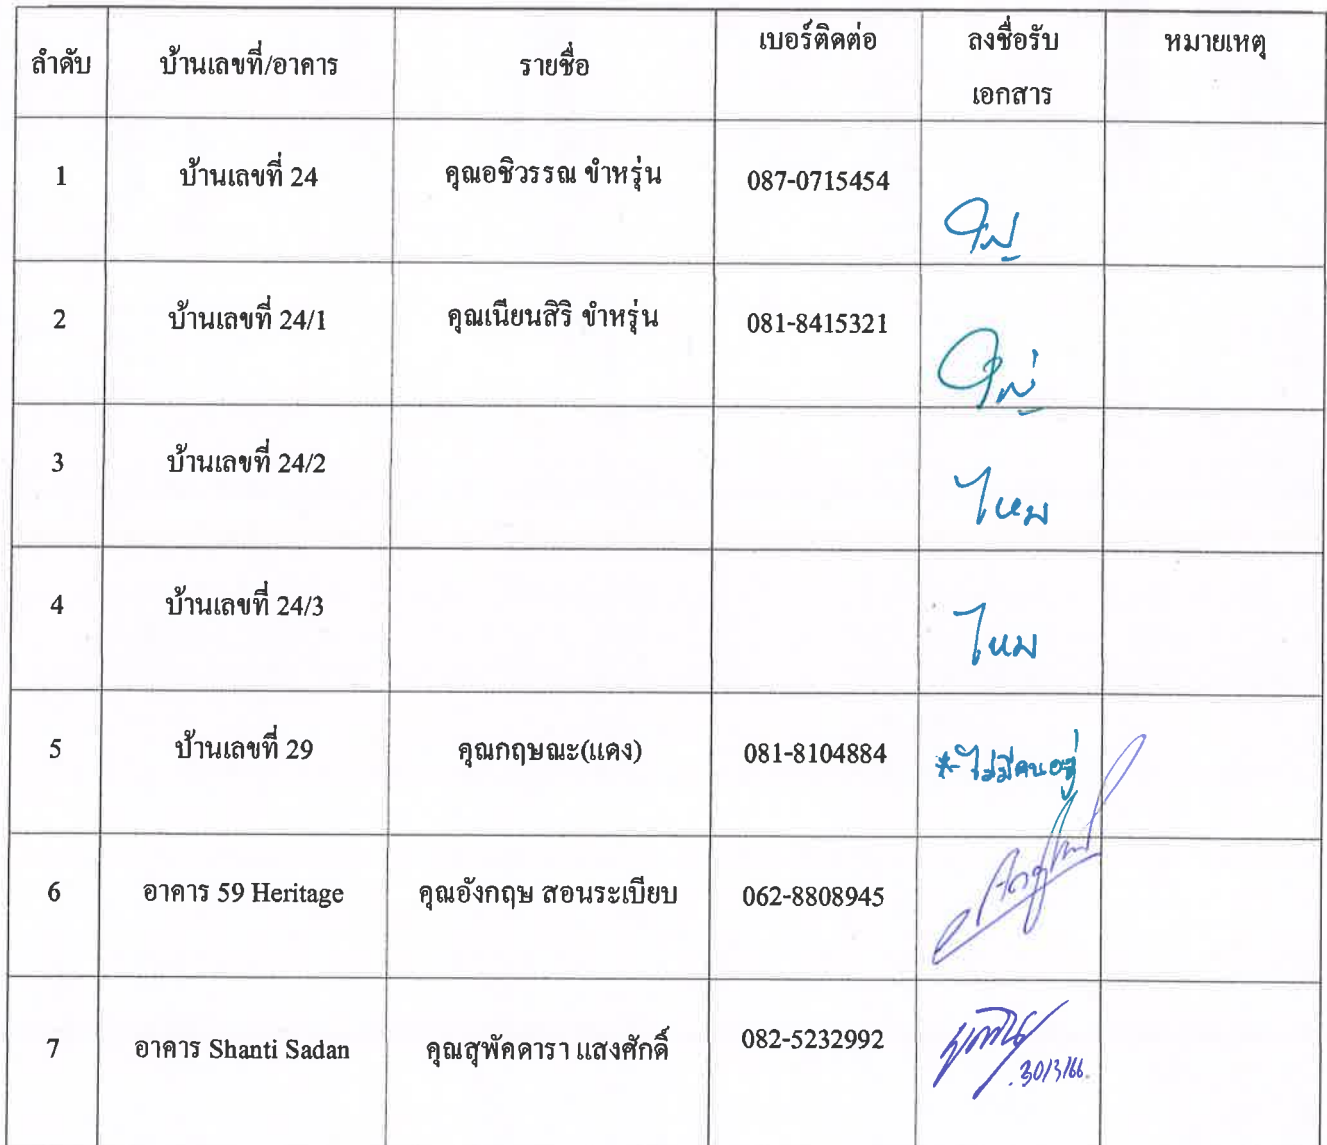 ลำดับ บ้านเลขที่/อาคาร รายชื่อ เบอร์ติดต่อ ลงชื่อรับ หมายเหตุ
เอกสาร
1 บ้านเลขที่ 24 คุณอชิวรรณ ขำหรุ่น 087-0715454
2 บ้านเลขที่ 24/1 คุณเนียนสิริ ขำหรุ่น 081-8415321
3 บ้านเลขที่ 24/2 ไหม
4 บ้านเลขที่ 24/3 ไหม
5 บ้านเลขที่ 29 คุณกฤษณะ(แคง) 081-8104884 *ไม่มีคนอยู่
6 อาคาร 59 Heritage คุณอังกฤษ สอนระเบียบ 062-8808945
7 อาคาร Shanti Sadan คุณสุพัคดารา แสงศักดิ์ 082-5232992
30/3/66